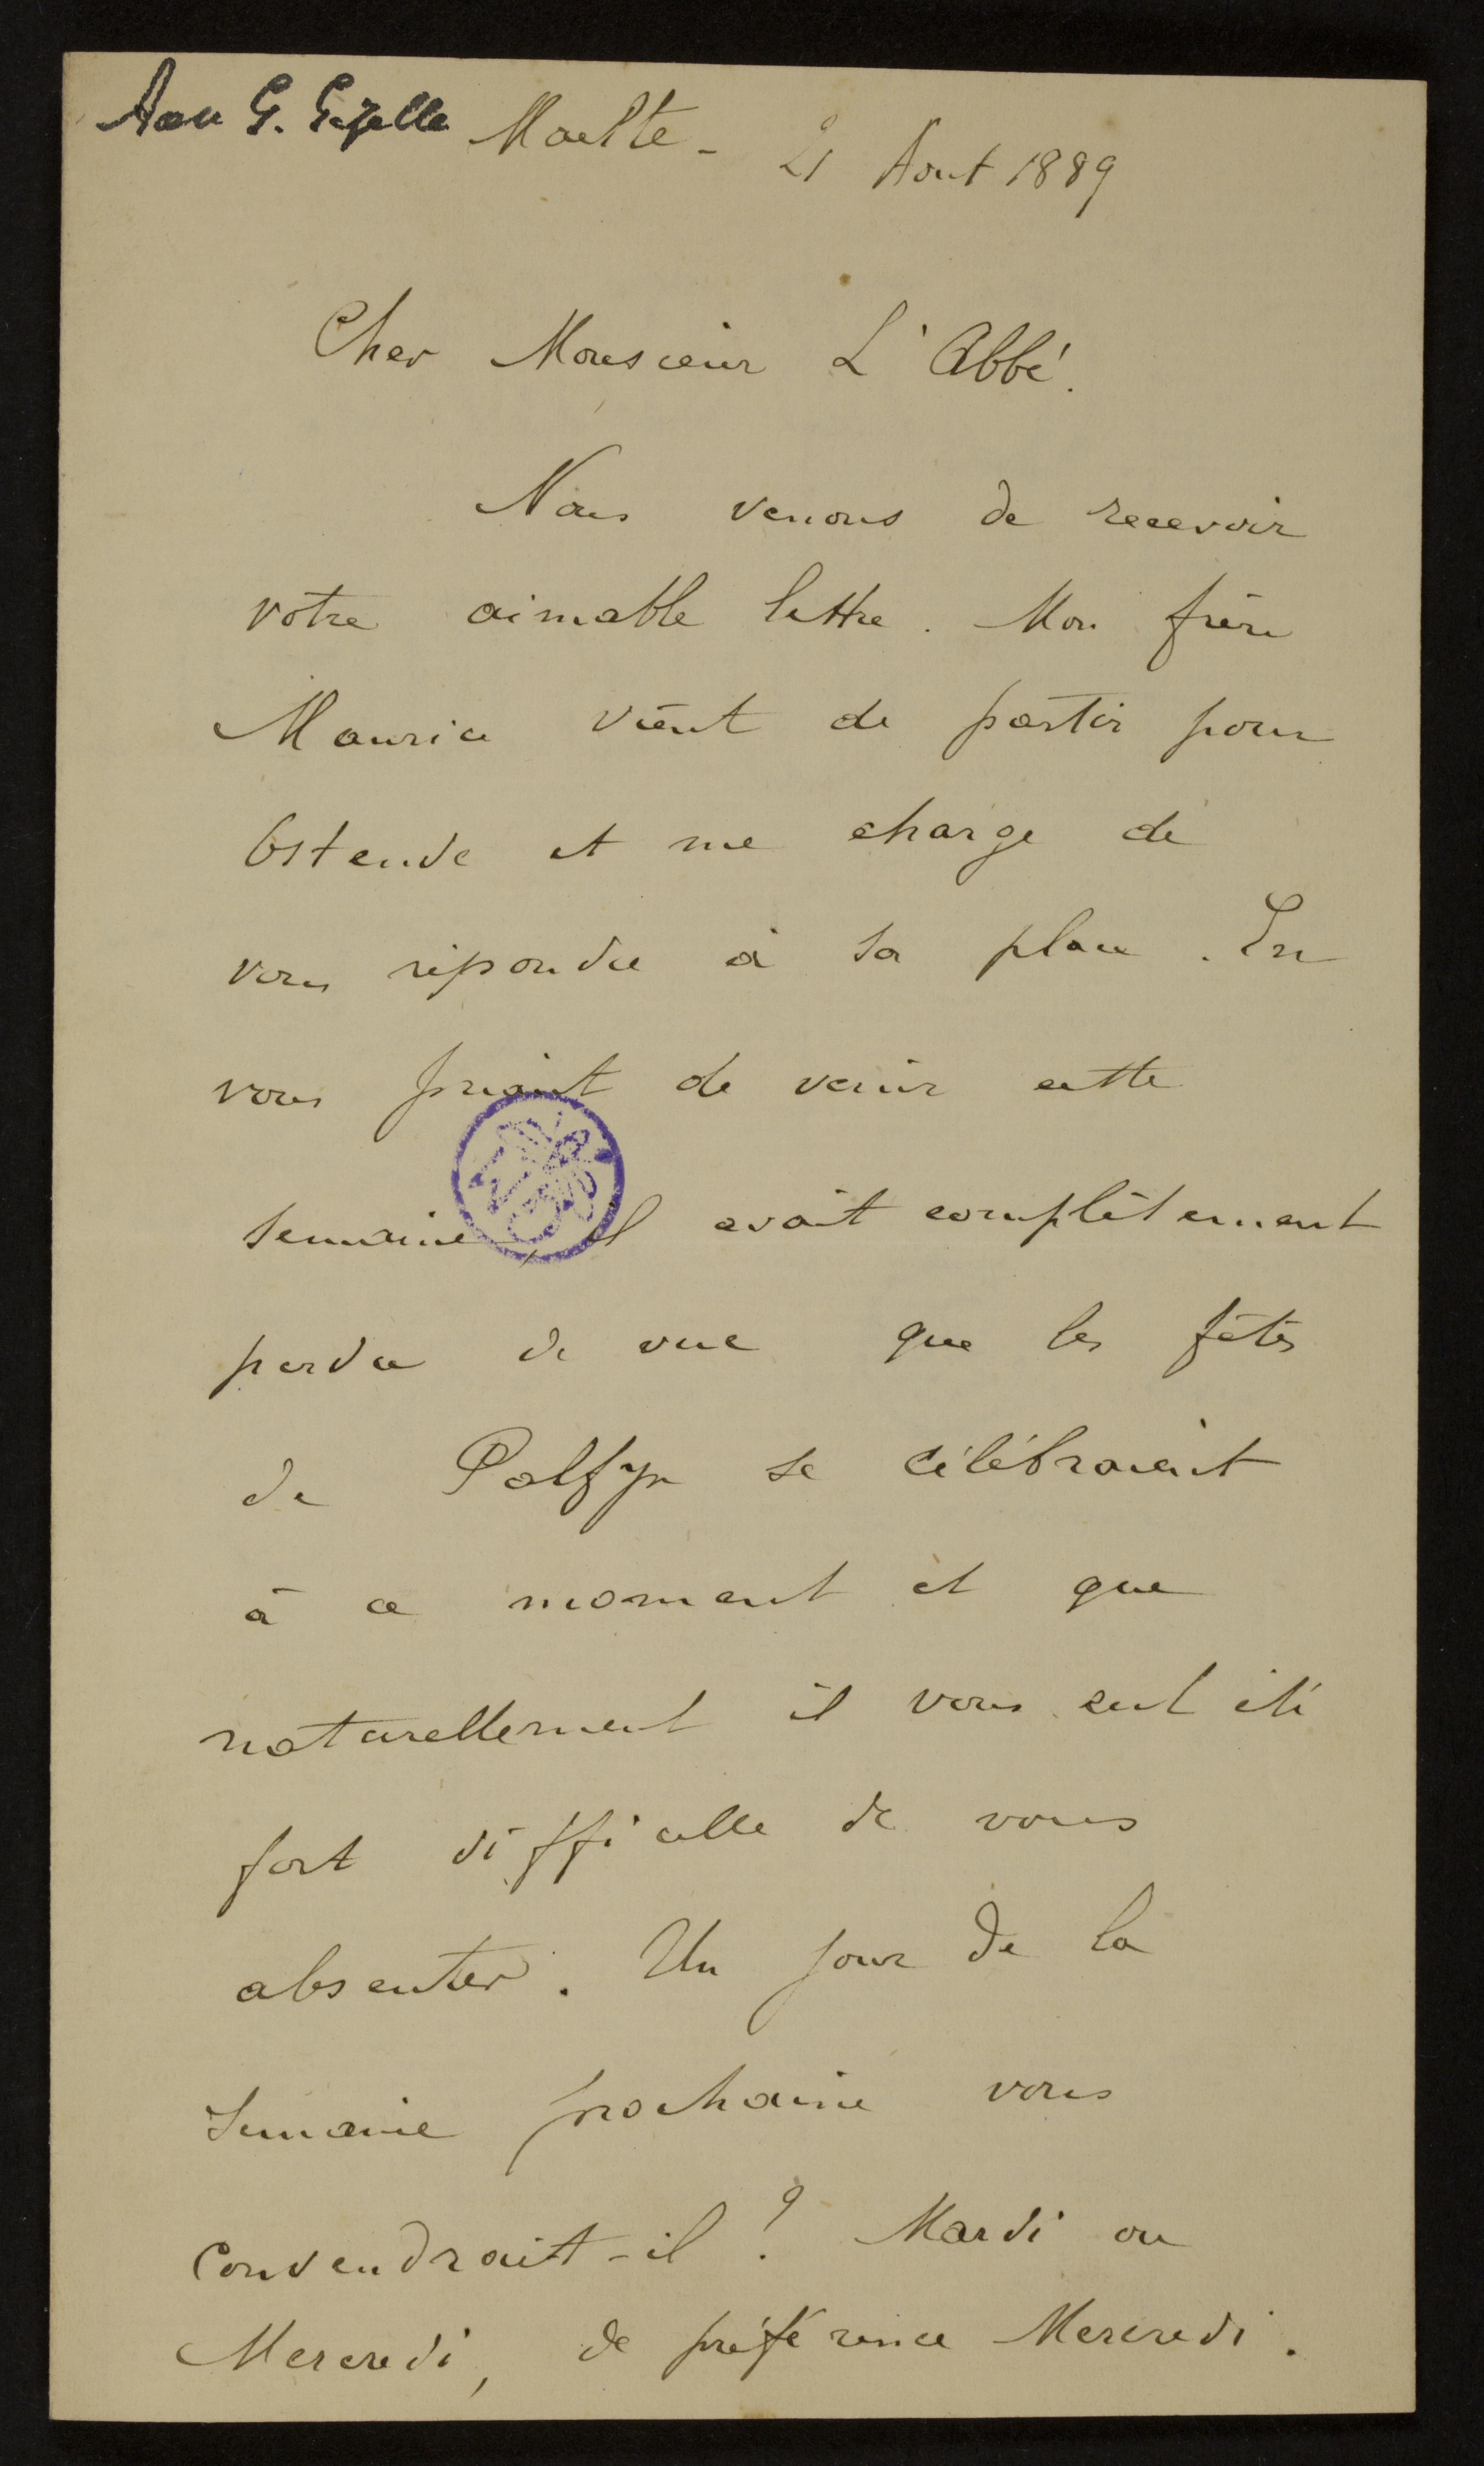 Aan G. Gezelle Moelte - 21 Aout 1889
Cher Monsieur L'Abbé.
Nous venons de recevoir
votre aimable lettre. Mon frère
Maurice vient de partir pour
Ostende et me charge de
vous répondre à sa place. En
vous priant de venir cette
semaine, il avait complètement
perdu de vue que les fêtes
de Palfyn se célébraient
à ce moment et que
naturellement il vous eut été
fort difficile de vous
absenter. Un jour de la
semaine prochaine vous
conviendrait-il ? Mardi ou
Mercredi, de préférence Mercredi.